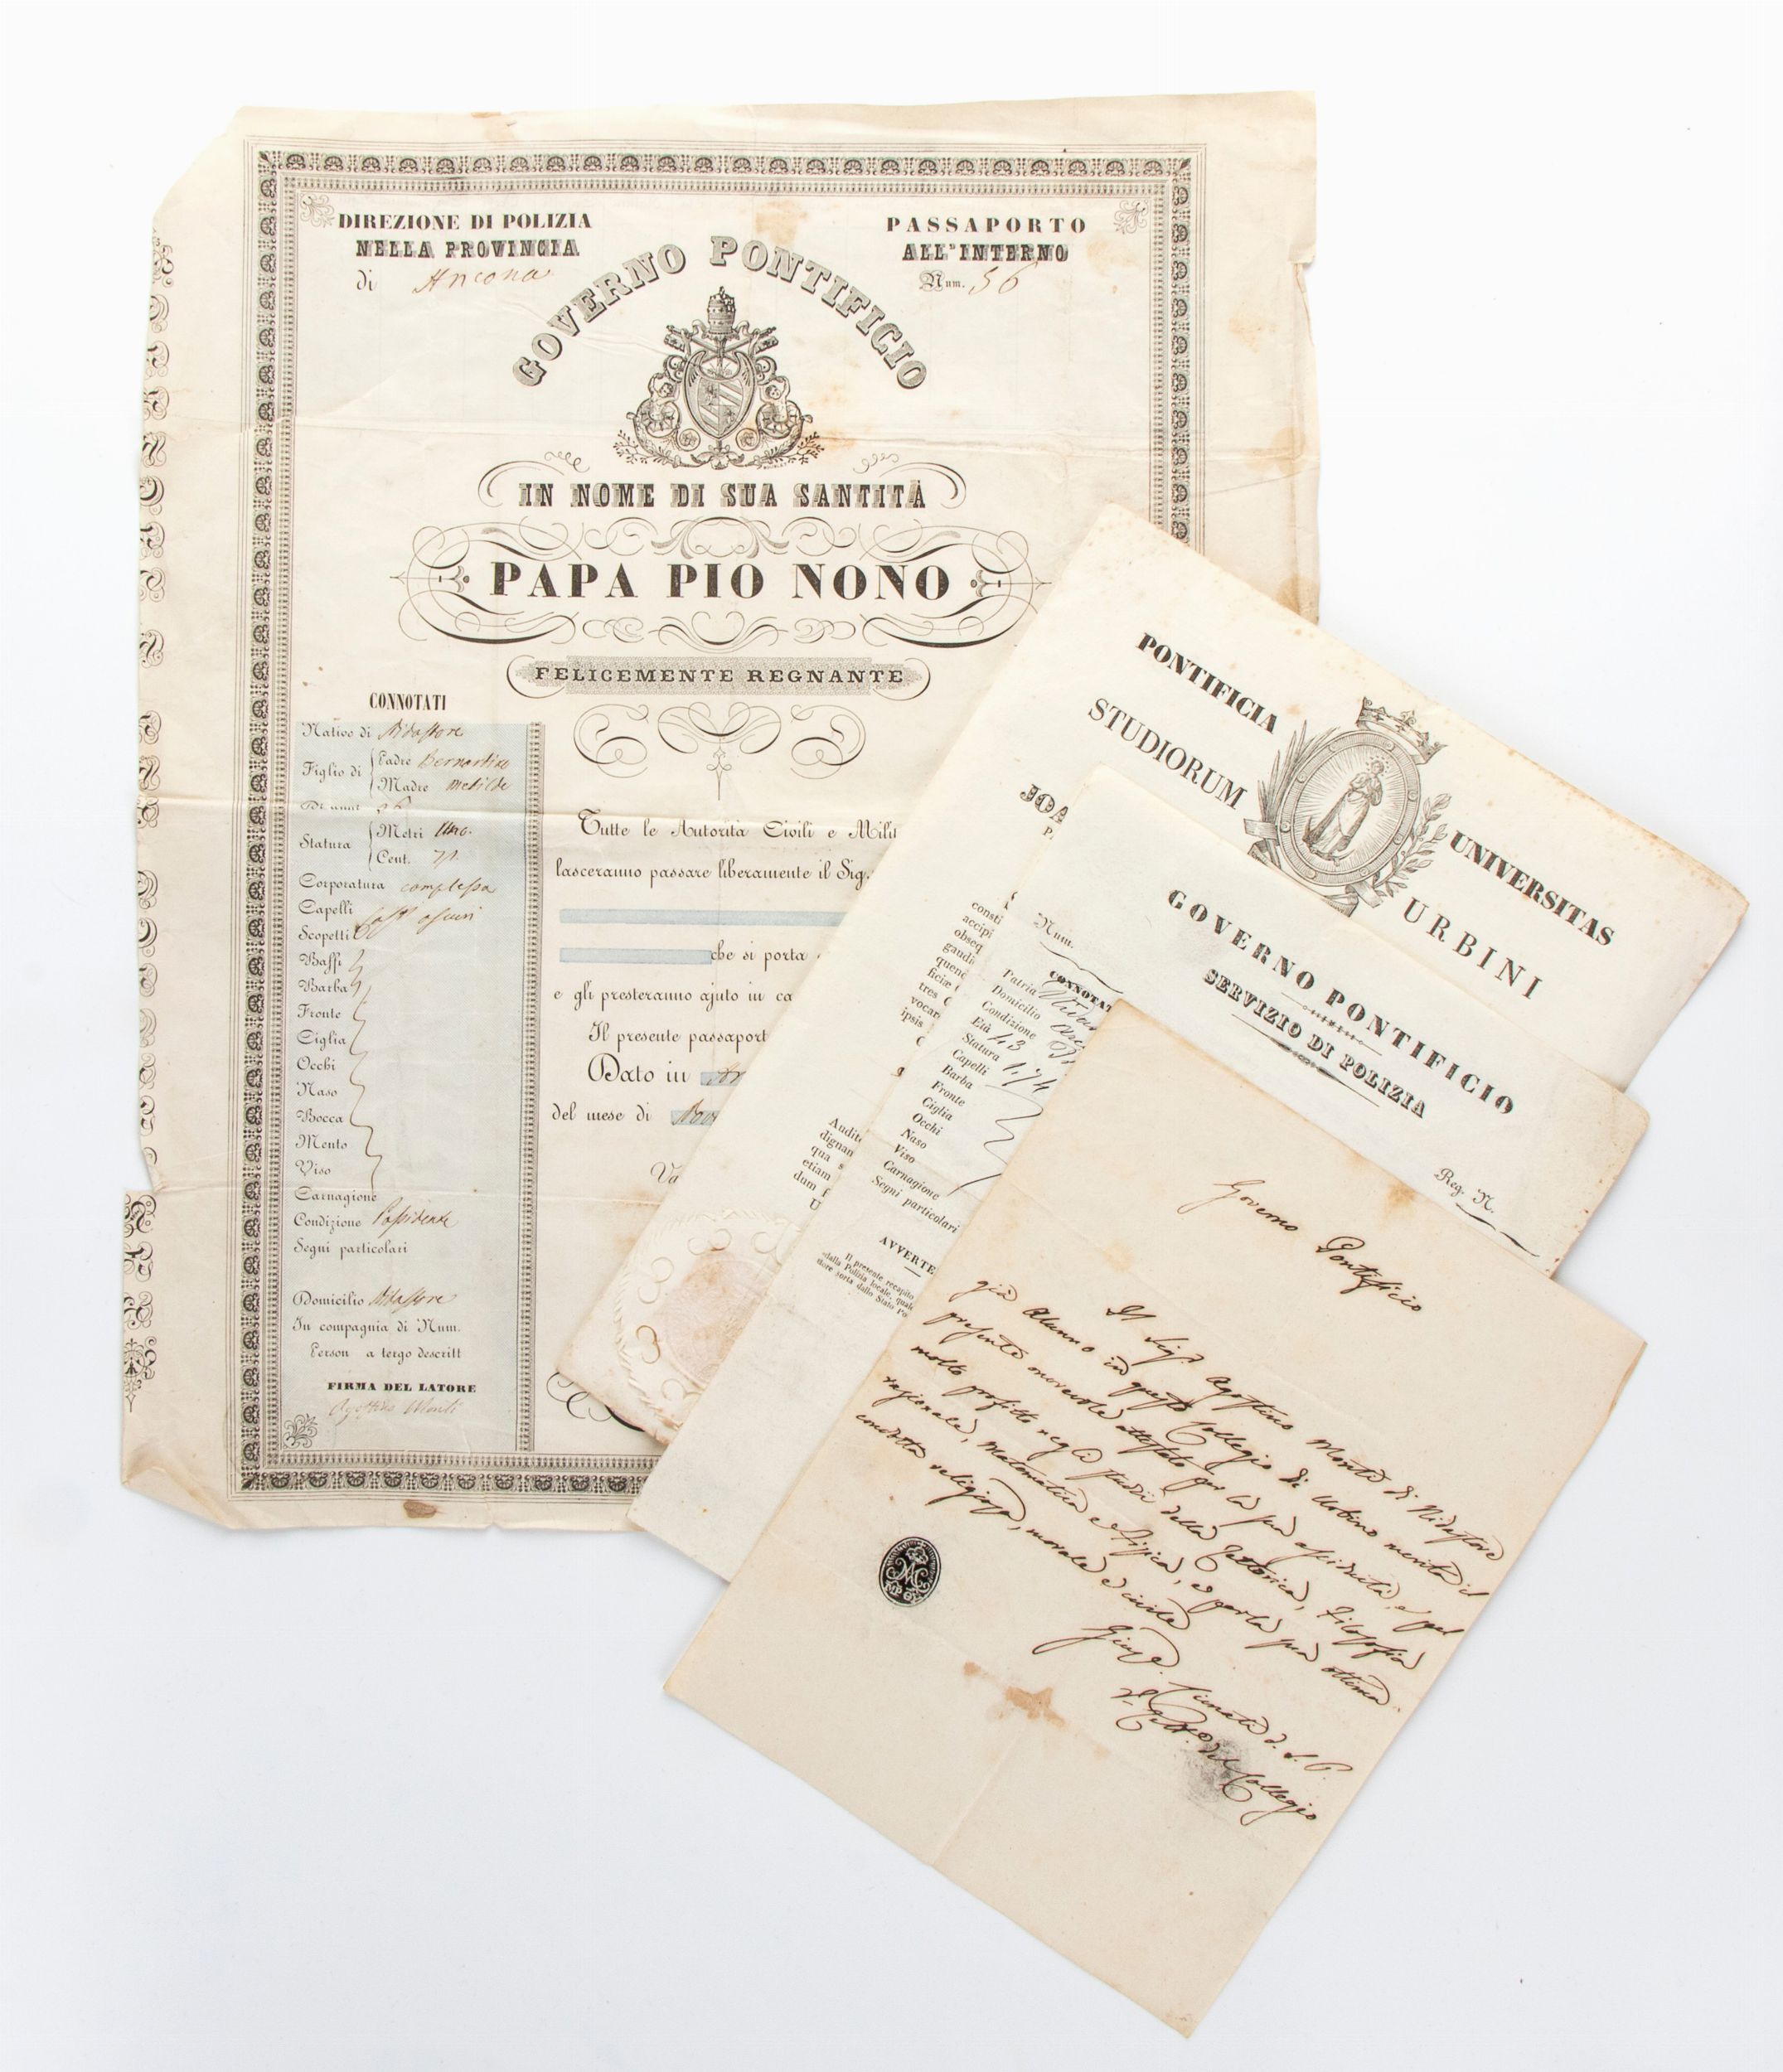 DIREZIONE DI POLIZIA
NELLA PROVINCIA
di Ancona
PASSAPORTO
ALL'INTERNO
Num. 56
GOVERNO PONTIFICIO
IN NOME DI SUA SANTITÀ
PAPA PIO NONO
FELICEMENTE REGNANTE
CONNOTATI
Nativo di Nidastore
Figlio di
Padre Bernardino
Madre Metilde
Di anni 36
Statura
Metri Uno.
Cent. 71.
Corporatura complessa
Capelli Cast. oscuri
Scopetti
Baffi
Barba
Fronte
Ciglia
Occhi
Naso
Bocca
Mento
Viso
Carnagione
Condizione Possidente
Segni particolari
Domicilio Nidastore
In compagnia di Num.
Person a tergo descritt
FIRMA DEL LATORE
Agostino Monti
Tutte le Autorità Civili e Milit
lasceranno passare liberamente il Sig.
che si porta
e gli presteranno ajuto in ca
Il presente passaport
Dato in An
del mese di Nov
Va
PONTIFICIA UNIVERSITAS
STUDIORUM URBINI
JOA
P.
consti
accipi
obseq
gaudi
quenc
ficiæ
tres
vocar
ipsis
Audit
dignan
qua s
etiam
dum f
U
GOVERNO PONTIFICIO
SERVIZIO DI POLIZIA
Num.
Reg. N.
CONNOTAT
Patria
Domicilio
Condizione
Età 43
Statura 1,74
Capelli
Barba
Fronte
Ciglia
Occhi
Naso
Viso
Carnagione
Segni particolari
AVVERTE
Il presente recapito
dalla Polizia locale, quale
tore sorta dallo Stato Po
Governo Pontificio
Il Sigr. Agostino Monti di Nidastore
già Alunno in questo Collegio di Urbino merita il
presente onorevole attestato per la sua assiduità, e pel
molto profitto negli studii della Rettorica, Filosofia
razionale, Matematica e Fisica, e per la sua ottima
condotta religiosa, morale e civile
Giuse. d. S. P.
Rettre. del Collegio